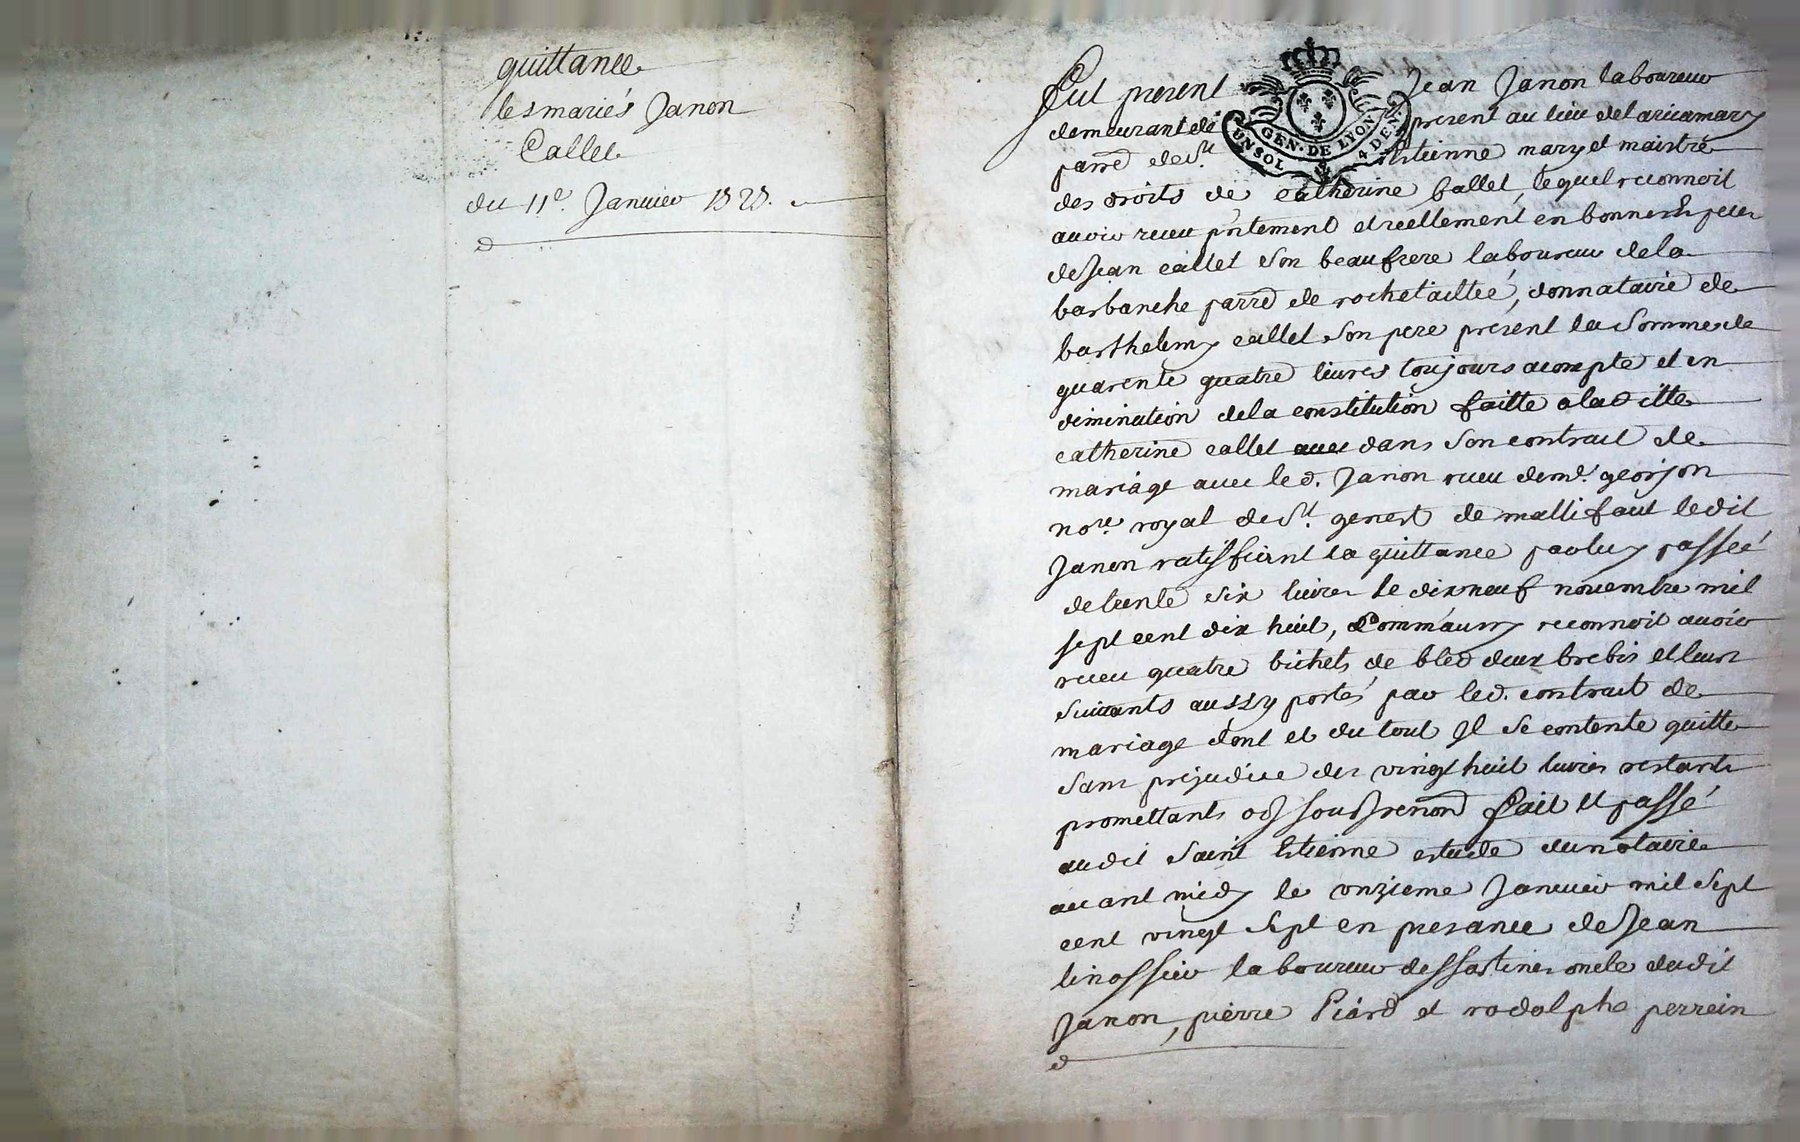 quittance
les mariés Janon
Callet
du 11e. Janvier 1727.
Fut present Jean Janon laboureur
demeurant de present au lieu de laricamary
parre de St. Estienne mary et maistre
des droits de Catherine Callet, lequel reconnoit
avoir receu pntement et reellement en bonnes
de Jean Callet son beaufrere laboureur de la
barbanche parre de rochetaillée, donnataire de
barthelemy Callet son pere present la somme de
quarente quatre livres toujours acompte et en
diminution de la constitution faitte a laditte
Catherine Callet dans son contract de
mariage avec led. Janon receu de me. georjon
nore royal de St. genest de mallifaut ledit
Janon ratiffient la quittance par luy passée
de trente six livres le dix neuf novembre mil
sept cent dix huit, Comm'aussy reconnoit avoir
receu quatre bichets de bled deux brebis et leurs
suivants aussy portés par led. contract de
mariage dont et du tout Il se contente quitte
sans prejudice des vingt huit livres restants
promettants obf soubf renond fait et passé
audit Saint Estienne estude du notaire
avant midy le onzieme Janvier mil sept
cent vingt sept en presance de Jean
linossier laboureur oncle dudit
Janon, pierre Piard et rodolphe perrein
GEN. DE LYON
UN SOL 4 DEN.